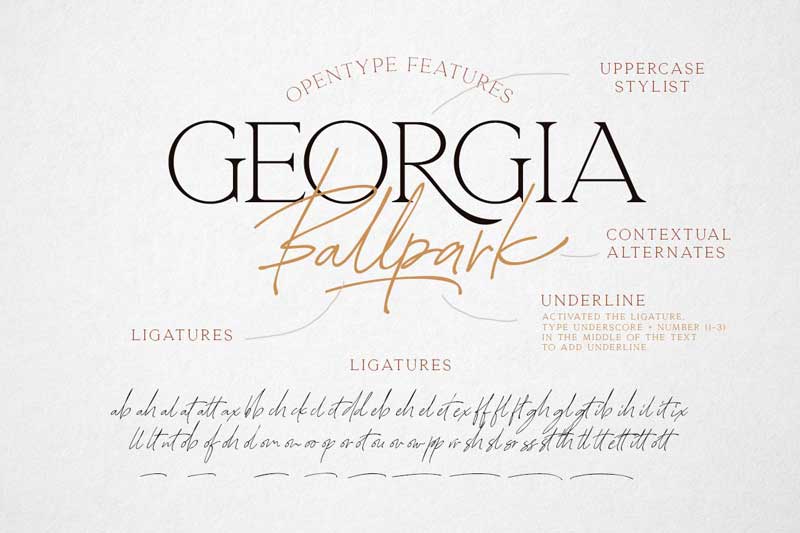 OPENTYPE FEATURES
UPPERCASE
STYLIST
GEORGIA
Ballpark
CONTEXTUAL
ALTERNATES
UNDERLINE
ACTIVATED THE LIGATURE,
TYPE UNDERSCORE + NUMBER (1-3)
IN THE MIDDLE OF THE TEXT
TO ADD UNDERLINE
LIGATURES
LIGATURES
ab ah al at att ax bb ch ck cl ct dd eb eh el et ex ff fl ft gh gl gt ib ih il it ix
ll lt nt ob of oh ol om on oo op or ot ou ov ow pp rr sh sl sr ss st th tl tt ett itt ott